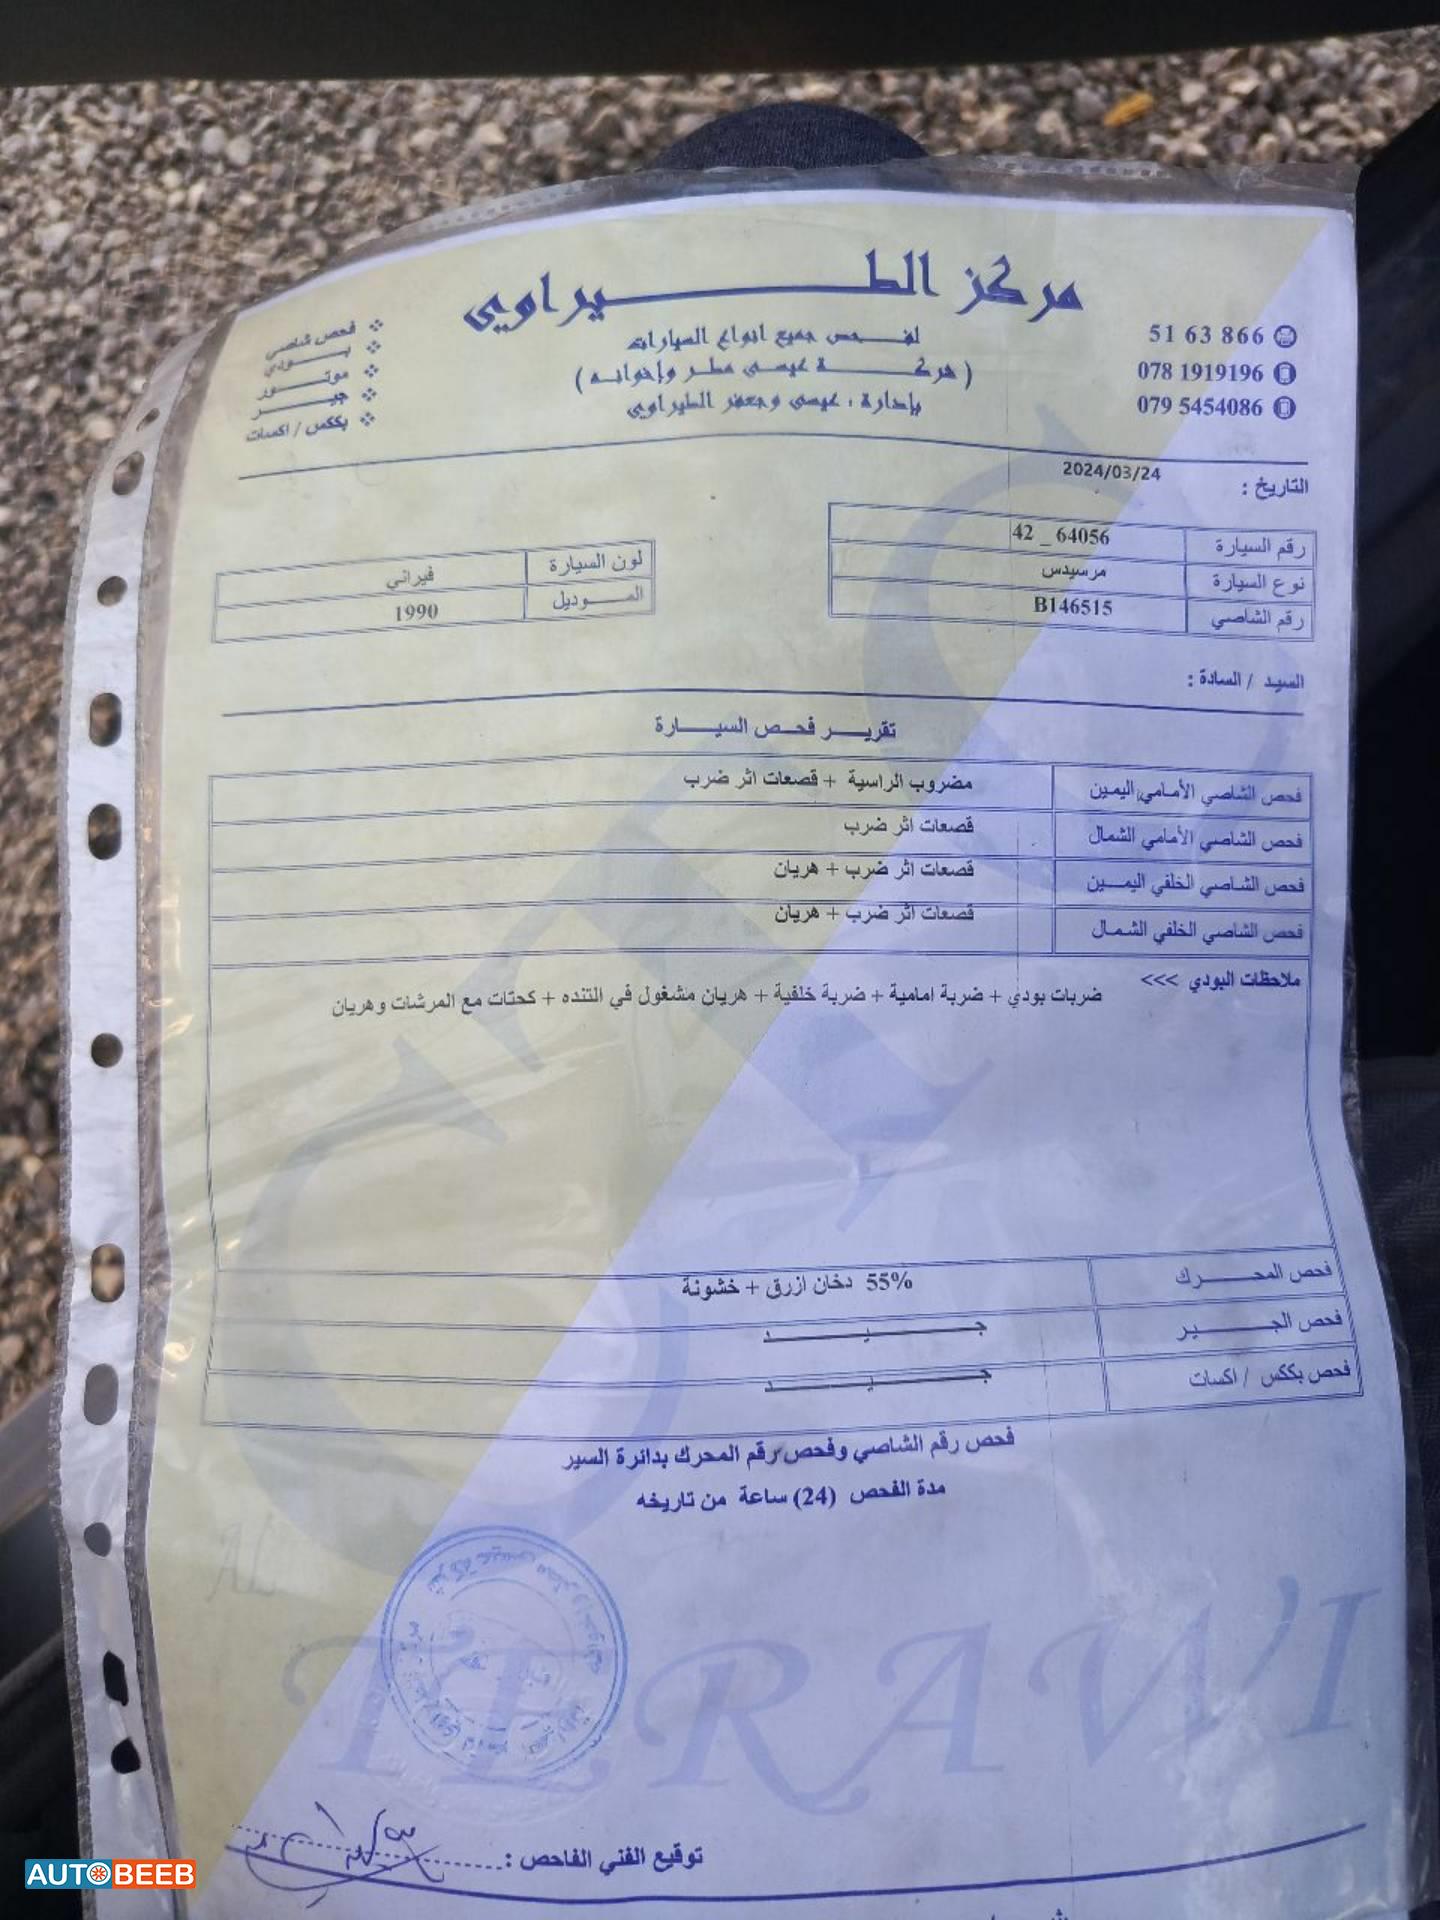 مركز الطـــــيراوي
لفـــحص جميع انواع السيارات
( شركـــــة عيسى مطر وإخوانه )
بإدارة : عيسى وجعفر الطيراوي
51 63 866
078 1919196
079 5454086
فحص شاصي
بـــودي
موتـــور
جيـــر
بكس / اكسات
التاريخ : 2024/03/24
رقم السيارة 42 _ 64056
نوع السيارة مرسيدس
رقم الشاصي B146515
لون السيارة فيراني
المـــوديل 1990
السيد / السادة :
تقريـــر فحـص السيـــارة
فحص الشاصي الأمامي اليمين مضروب الراسية + قصعات اثر ضرب
فحص الشاصي الأمامي الشمال قصعات اثر ضرب
فحص الشاصي الخلفي اليمـــين قصعات اثر ضرب + هريان
فحص الشاصي الخلفي الشمـال قصعات اثر ضرب + هريان
ملاحظات البودي >>>
ضربات بودي + ضربة امامية + ضربة خلفية + هريان مشغول في التنده + كحتات مع المرشات وهريان
فحص المحـــــرك 55% دخان ازرق + خشونة
فحص الجـــــير جـــــيـــــد
فحص بككس / اكسات جـــــيـــــد
فحص رقم الشاصي وفحص رقم المحرك بدائرة السير
مدة الفحص (24) ساعة من تاريخه
TERAWI
توقيع الفني الفاحص :
AUTOBEEB